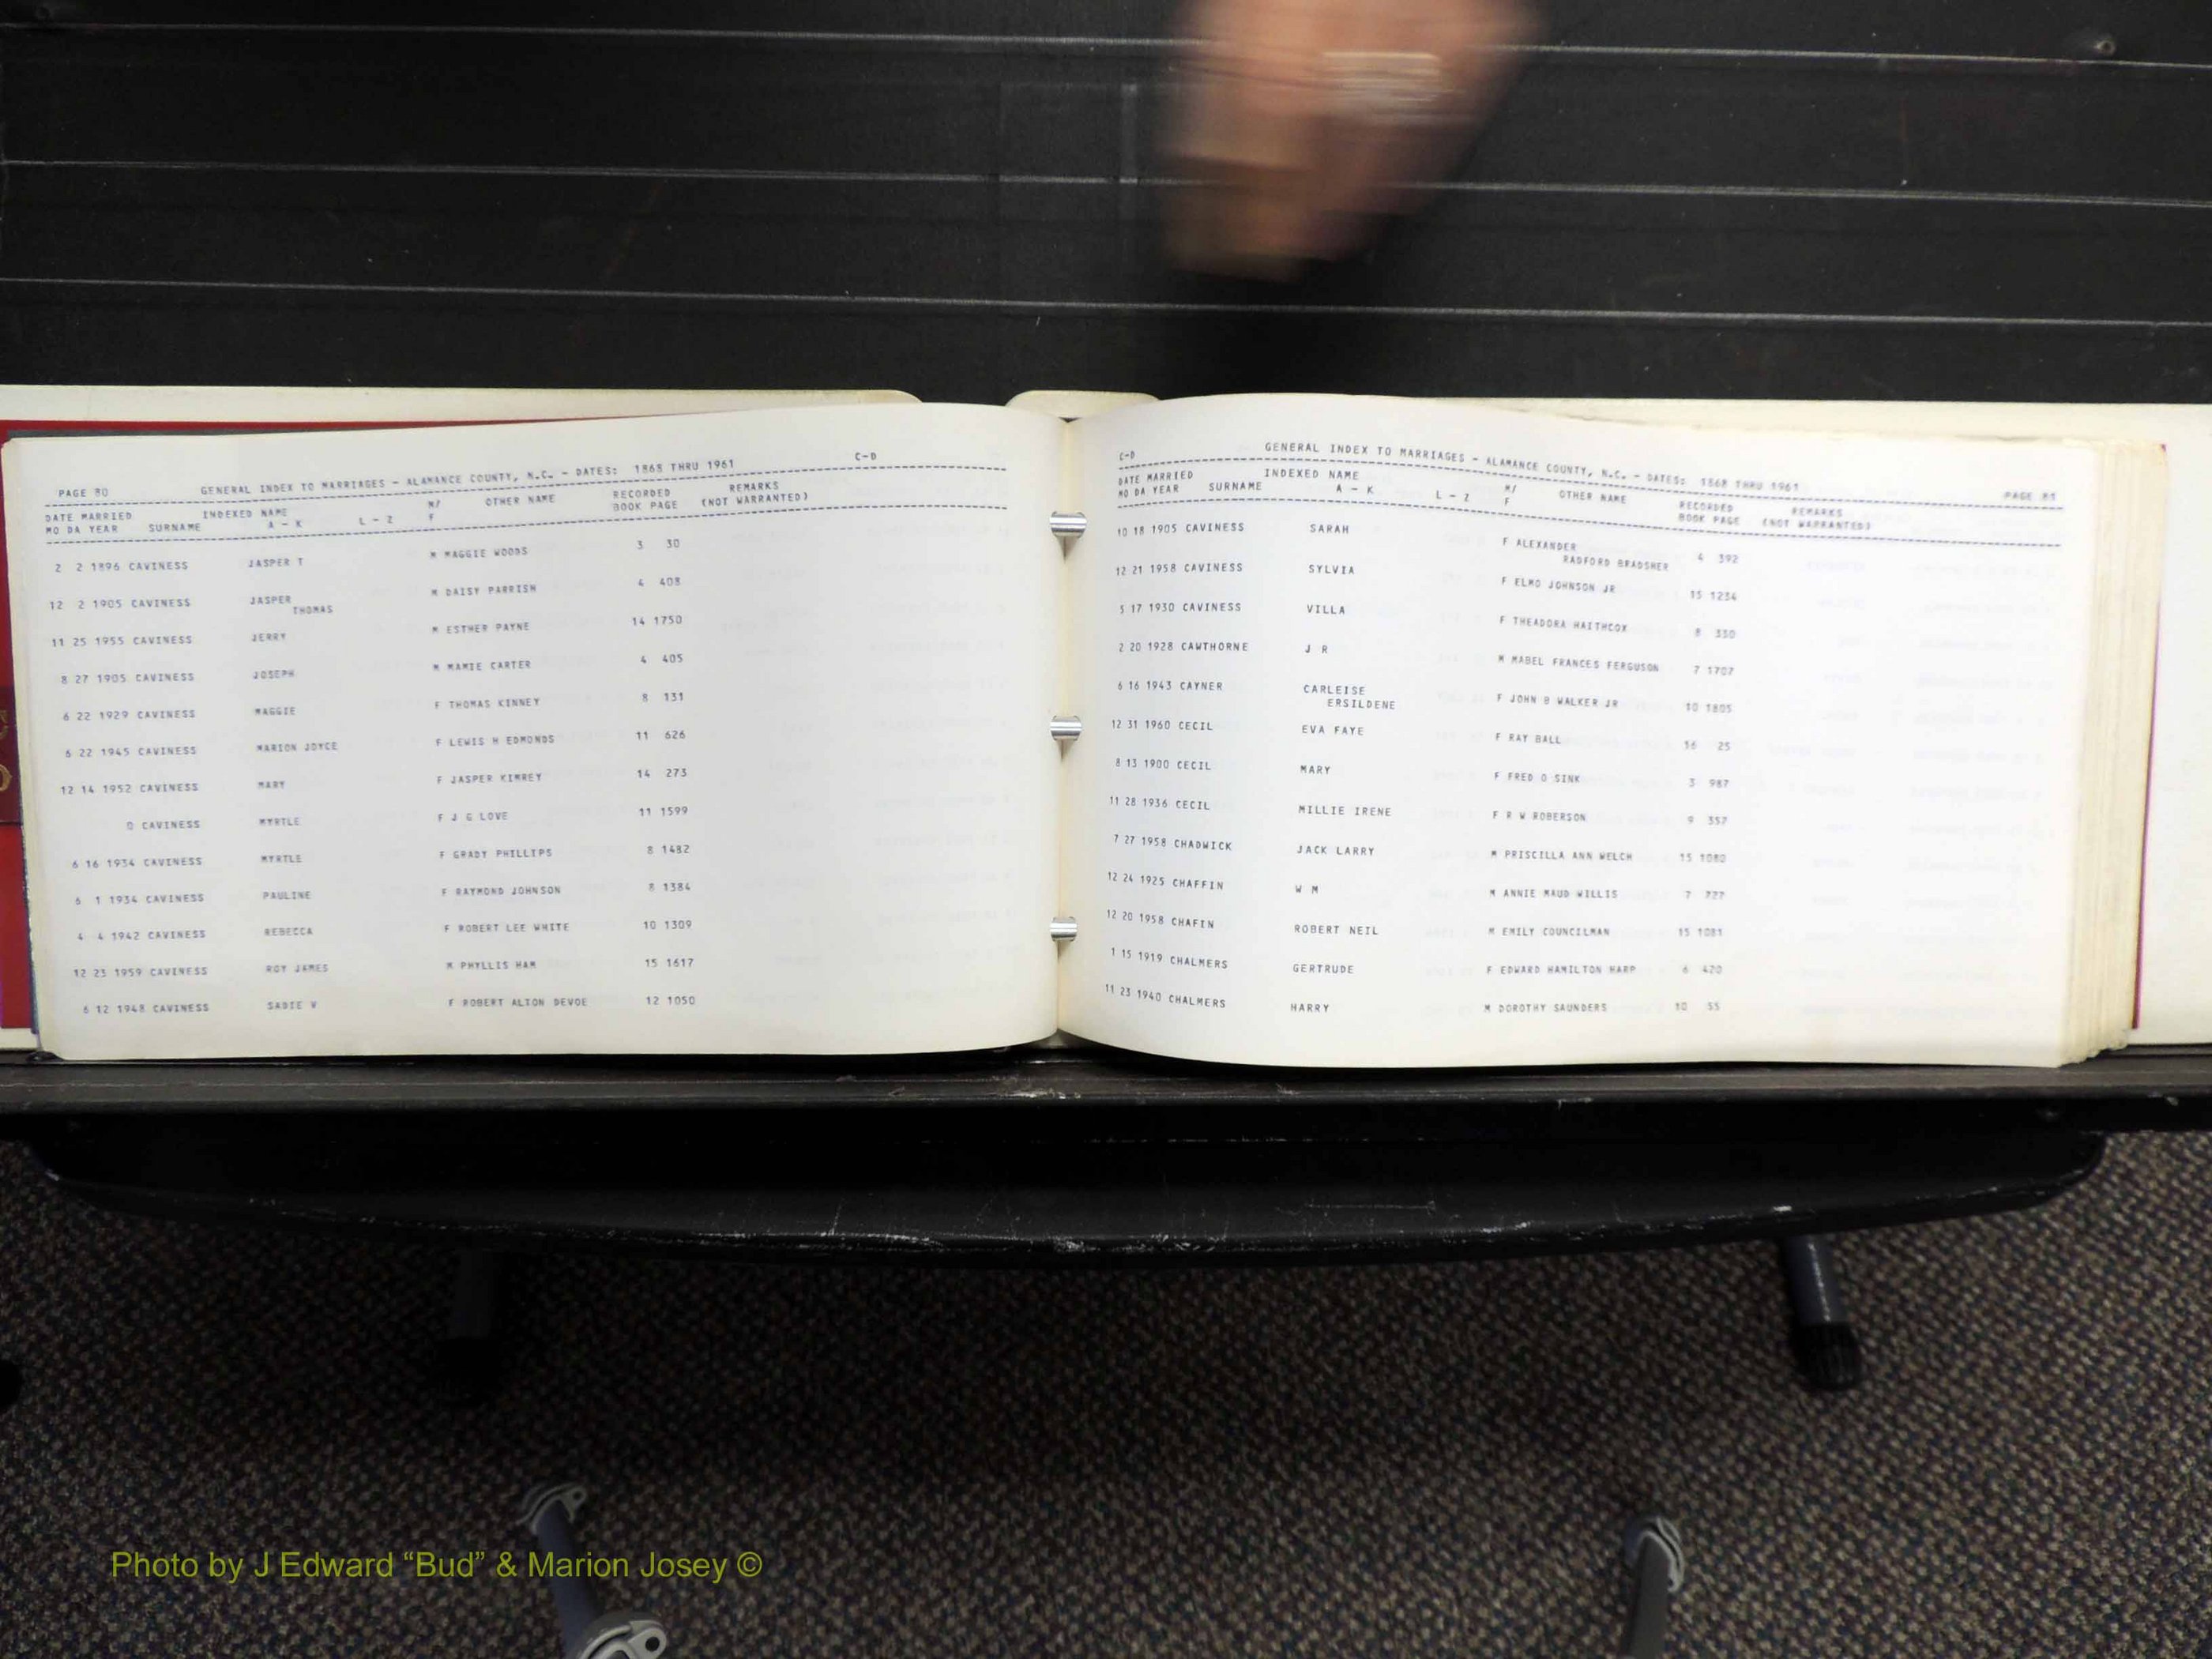 PAGE 80 GENERAL INDEX TO MARRIAGES - ALAMANCE COUNTY, N.C. - DATES: 1868 THRU 1961 C-D
DATE MARRIED INDEXED NAME M/ OTHER NAME RECORDED REMARKS
MO DA YEAR SURNAME A - K L - Z F BOOK PAGE (NOT WARRANTED)
2 2 1896 CAVINESS JASPER T M MAGGIE WOODS 3 30
12 2 1905 CAVINESS JASPER M DAISY PARRISH 4 408
THOMAS
11 25 1955 CAVINESS JERRY M ESTHER PAYNE 14 1750
8 27 1905 CAVINESS JOSEPH M MAMIE CARTER 4 405
6 22 1929 CAVINESS MAGGIE F THOMAS KINNEY 8 131
6 22 1945 CAVINESS MARION JOYCE F LEWIS H EDMONDS 11 626
12 14 1952 CAVINESS MARY F JASPER KIMREY 14 273
0 CAVINESS MYRTLE F J G LOVE 11 1599
6 16 1934 CAVINESS MYRTLE F GRADY PHILLIPS 8 1482
6 1 1934 CAVINESS PAULINE F RAYMOND JOHNSON 8 1384
4 4 1942 CAVINESS REBECCA F ROBERT LEE WHITE 10 1309
12 23 1959 CAVINESS ROY JAMES M PHYLLIS HAM 15 1617
6 12 1948 CAVINESS SADIE V F ROBERT ALTON DEVOE 12 1050
C-D GENERAL INDEX TO MARRIAGES - ALAMANCE COUNTY, N.C. - DATES: 1868 THRU 1961 PAGE 81
DATE MARRIED INDEXED NAME M/ OTHER NAME RECORDED REMARKS
MO DA YEAR SURNAME A - K L - Z F BOOK PAGE (NOT WARRANTED)
10 18 1905 CAVINESS SARAH F ALEXANDER 4 392
RADFORD BRADSHER
12 21 1958 CAVINESS SYLVIA F ELMO JOHNSON JR 15 1234
5 17 1930 CAVINESS VILLA F THEADORA HAITHCOX 8 330
2 20 1928 CAWTHORNE J R M MABEL FRANCES FERGUSON 7 1707
6 16 1943 CAYNER CARLEISE F JOHN B WALKER JR 10 1805
ERSILDENE
12 31 1960 CECIL EVA FAYE F RAY BALL 16 25
8 13 1900 CECIL MARY F FRED O SINK 3 987
11 28 1936 CECIL MILLIE IRENE F R W ROBERSON 9 357
7 27 1958 CHADWICK JACK LARRY M PRISCILLA ANN WELCH 15 1080
12 24 1925 CHAFFIN W M M ANNIE MAUD WILLIS 7
12 20 1958 CHAFIN ROBERT NEIL M EMILY COUNCILMAN 15 1081
1 15 1919 CHALMERS GERTRUDE F EDWARD HAMILTON HARP 6 420
11 23 1940 CHALMERS HARRY M DOROTHY SAUNDERS 10 55
Photo by J Edward “Bud” & Marion Josey ©